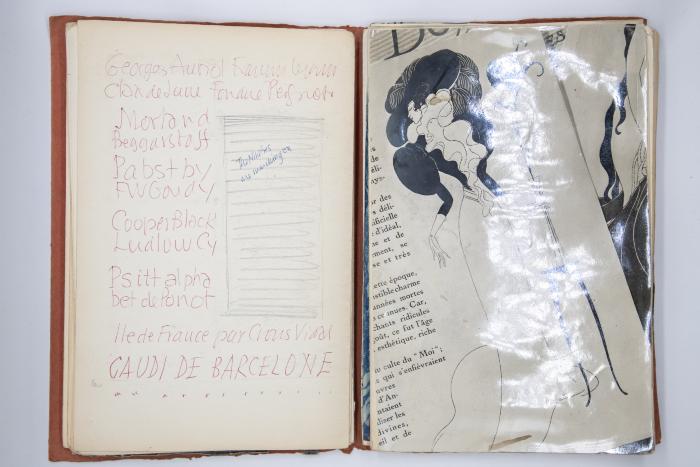 Georges Auriol
Clair de lune Fonderie Peignot
Morland
Beggarstaff
Pabst by
FW Goudy
Cooper Black
Ludlow Cy
Psitt alpha
bet de Ponot
Ile de France par Crous Vidal
GAUDI DE BARCELONE
de
ays-
r des
s déli-
ificielle
d'idéal,
ne et de
ment, se
se et très
ette époque,
stible charme
années mortes
s connues. Car,
chants ridicules
goût, ce fut l'âge
esthétique, riche
u culte du "Moi";
s qui s'enfiévraient
uvres
d'An-
ntaient
diser les
divines,
eil et de